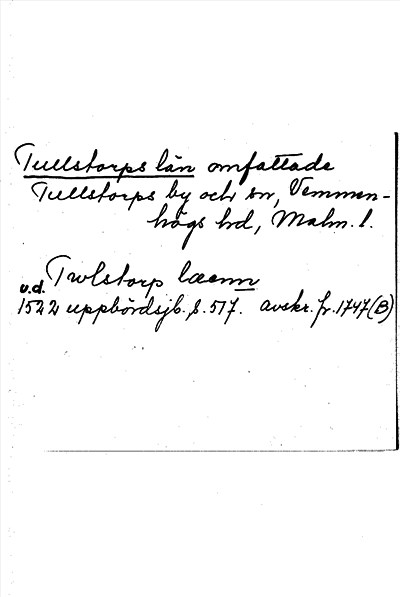 Tullstorps län omfattade
Tullstorps by och sn, Vemmen-
högs hd, Malm. l.
u.d. Twlstorp lænn
1522 uppbördsjb. s. 517. avskr. fr. 1747 (B)